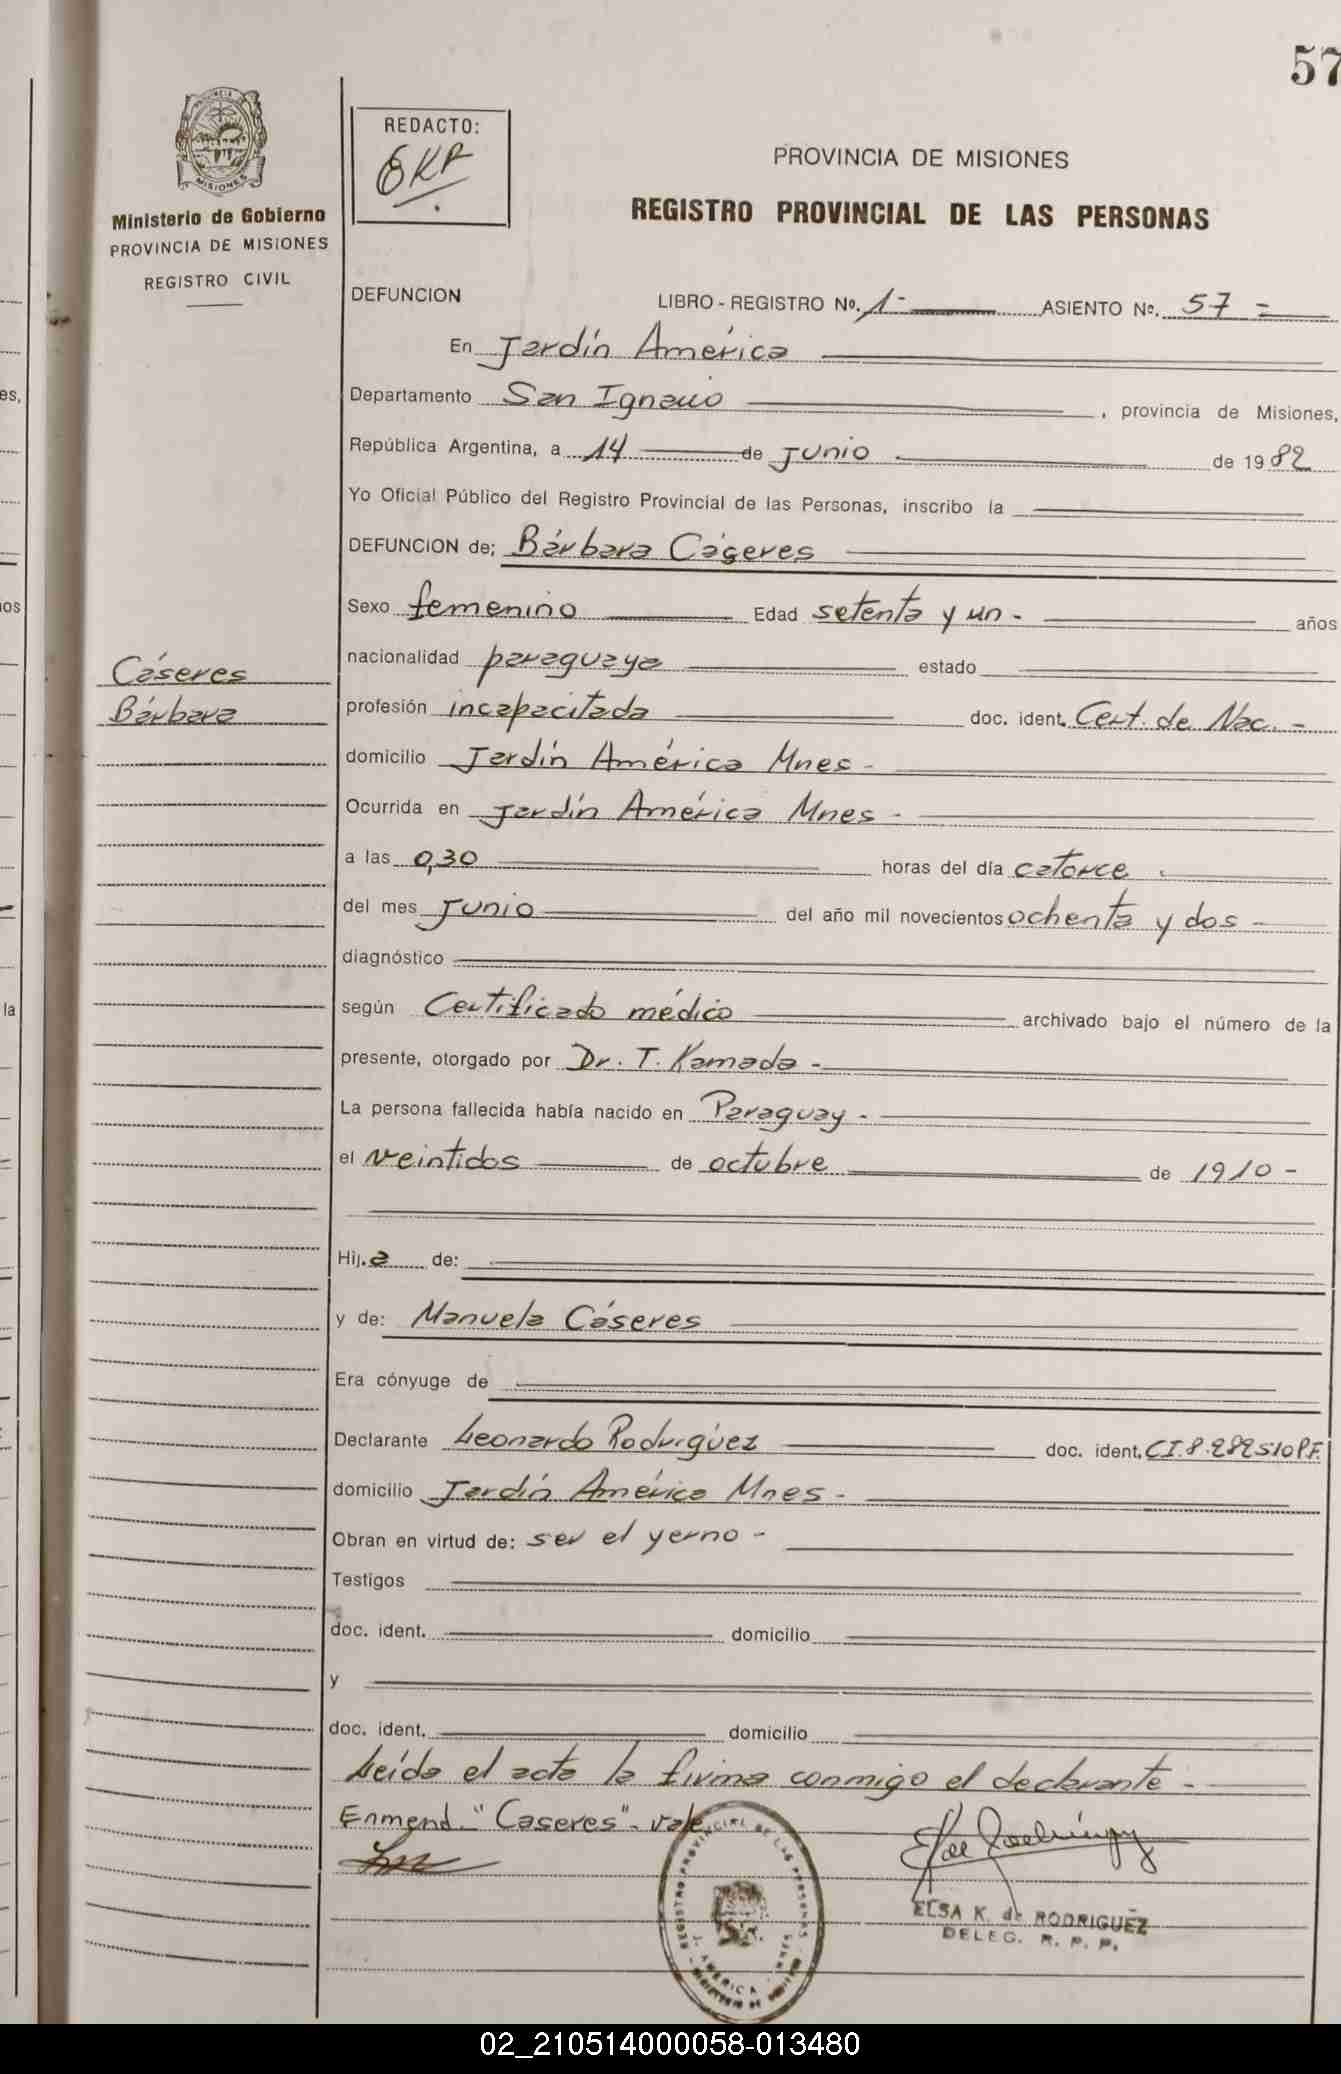 57
PROVINCIA DE
MISIONES
Ministerio de Gobierno
PROVINCIA DE MISIONES
REGISTRO CIVIL
REDACTO:
EKR
PROVINCIA DE MISIONES
REGISTRO PROVINCIAL DE LAS PERSONAS
DEFUNCION LIBRO - REGISTRO Nº. 1- ASIENTO Nº. 57 =
En Jardín América
Departamento San Ignacio , provincia de Misiones,
República Argentina, a 14 de Junio de 1982
Yo Oficial Público del Registro Provincial de las Personas, inscribo la
DEFUNCION de; Bárbara Cáseres
Sexo femenino Edad setenta y un - años
nacionalidad paraguaya estado
Cáseres
Bárbara
profesión incapacitada doc. ident. Cert. de Nac. -
domicilio Jardín América Mnes -
Ocurrida en Jardín América Mnes -
a las 0,30 horas del día catorce .
del mes Junio del año mil novecientos ochenta y dos -
diagnóstico
según Certificado médico archivado bajo el número de la
presente, otorgado por Dr. T. Kamada -
La persona fallecida había nacido en Paraguay -
el veintidos de octubre de 1910 -
Hij.a de:
y de: Manuela Cáseres
Era cónyuge de
Declarante Leonardo Rodríguez doc. ident. CI.8.282510P.F.
domicilio Jardín América Mnes -
Obran en virtud de: ser el yerno -
Testigos
doc. ident. domicilio
y
doc. ident. domicilio
Leída el acta la firma conmigo el declarante -
Enmend. "Caseres" - vale
REGISTRO PROVINCIAL DE LAS PERSONAS
J. AMERICA - MNES
ELSA K. de RODRIGUEZ
DELEG. R. P. P.
02_210514000058-013480